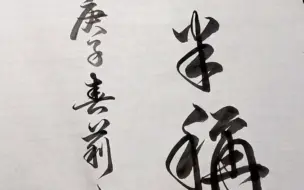 半稱
庚子春莉